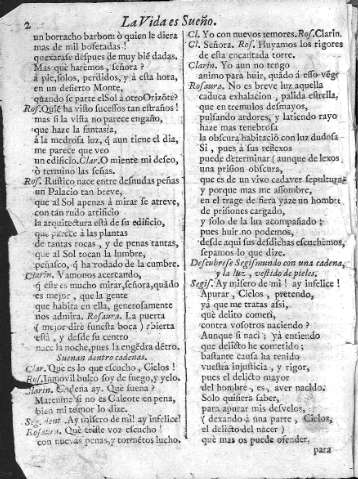 2 La Vida es Sueño.
un borracho barbon! ò quien le diera
mas de mil bofetadas!
quexarase despues de muy biẽ dadas.
Mas què harèmos, señora?
à pie, solos, perdidos, y à esta hora,
en un desierto Monte,
quando se parte el Sol à otro Orizõte?
Ros. Quiẽ ha visto sucessos tan estraños!
mas si la vista no parece engaño,
que haze la fantasia,
à la medrosa luz, q̃ aun tiene el dia,
me parece que veo
un edificio. Clar. O miente mi deseo,
ò termino las señas.
Ros. Rustico nace entre desnudas peñas
un Palacio tan breve,
que al Sol apenas à mirar se atreve,
con tan rudo artificio
la arquitectura està de su edificio,
que parece à las plantas
de tantas rocas, y de penas tantas,
que al Sol tocan la lumbre,
peñasco, q̃ ha rodado de la cumbre.
Clarin. Vamonos acercando,
q̃ este es mucho mirar, señora, quãdo
es mejor, que la gente
que habita en ella, generosamente
nos admita. Rosaura. La puerta
( mejor dirè funesta boca ) abierta
està, y desde su centro
nace la noche, pues la engẽdra dẽtro.
Suenan dentro cadenas.
Clar. Que es lo que escucho, Cielos!
Ros. Inmovil bulto soy de fuego, y yelo.
Clarin. Cadena ay. Que suena?
Matenme si no es Galeote en pena,
bien mi temor lo dize.
Seg. dent. Ay misero de mi! ay infelice!
Rosaura. Què triste voz escucho!
con nuevas penas, y tormẽtos lucho.
Cl. Yo con nuevos temores. Ros. Clarin.
Cl. Señora. Ros. Huyamos los rigores
de esta encantada torre.
Clarin. Yo aun no tengo
animo para huir, quãdo à esso vẽgo
Rosaura. No es breve luz aquella
caduca exhalacion, palida estrella,
que en tremulos desmayos,
pulsando ardores, y latiendo rayo
haze mas tenebrosa
la obscura habitaciõ con luz dudosa
Si, pues à sus reflexos
puede determinar ( aunque de lexos
una prision obscura,
que es de un vivo cadaver sepultura
y porque mas me assombre,
en el trage de fiera yaze un hombre
de prisiones cargado,
y solo de la luz acompañado;
pues huir no podemos,
desde aqui sus desdichas escuchemos,
sepamos lo que dize.
Descubrese Segismundo con una cadena,
y la luz, vestido de pieles.
Segis. Ay misero de mi! ay infelice!
Apurar, Cielos, pretendo,
yà que me tratais assi,
que delito cometì,
contra vosotros naciendo?
Aunque si nacì; yà entiendo
què delicto he cometido;
bastante causa ha tenido
vuestra injusticia, y rigor,
pues el delicto mayor
del hombre, es, aver nacido.
Solo quisiera saber,
para apurar mis desvelos,
( dexando à una parte, Cielos,
el delicto del nacer )
què mas os puede ofender,
para